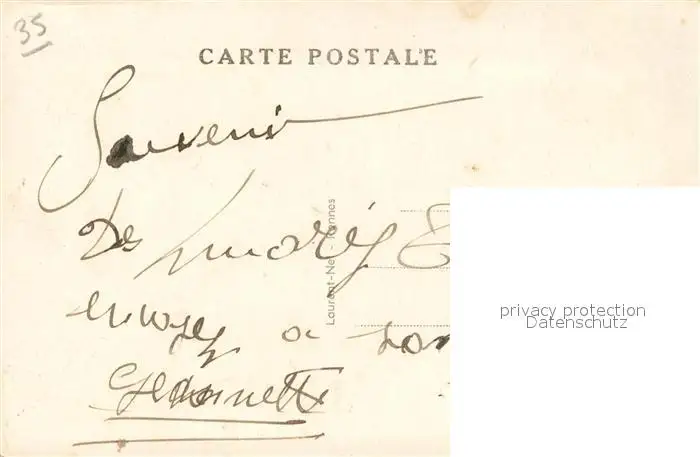 35
CARTE POSTALE
Souvenir
Des mariés
envoyez a
Jeannette
Laurent-Nel - Rennes
privacy protection
Datenschutz